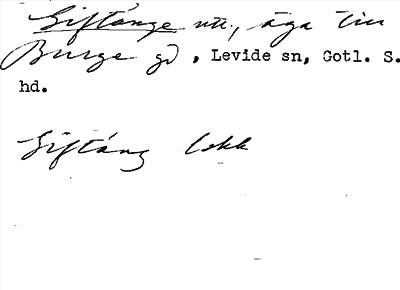 Giftänge utt., äga till
Burge gd, Levide sn, Gotl. S.
hd.
Giftäng